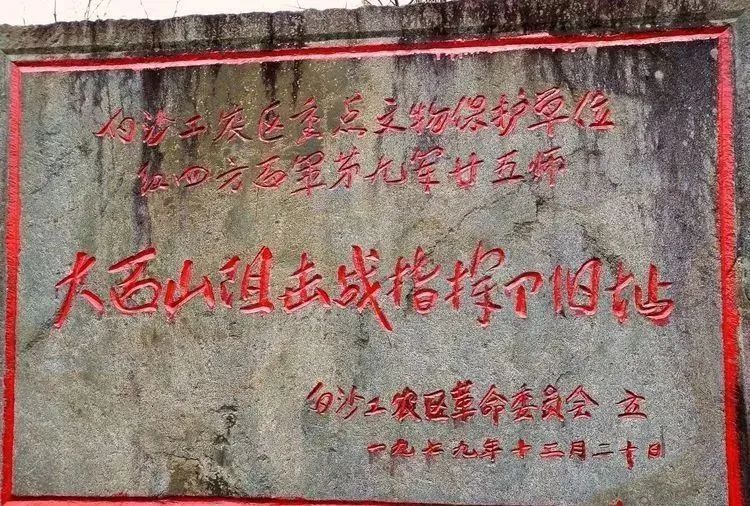 白沙工农区重点文物保护单位
红四方面军第九军廿五师
大面山阻击战指挥部旧址
白沙工农区革命委员会 立
一九七九年十二月二十日